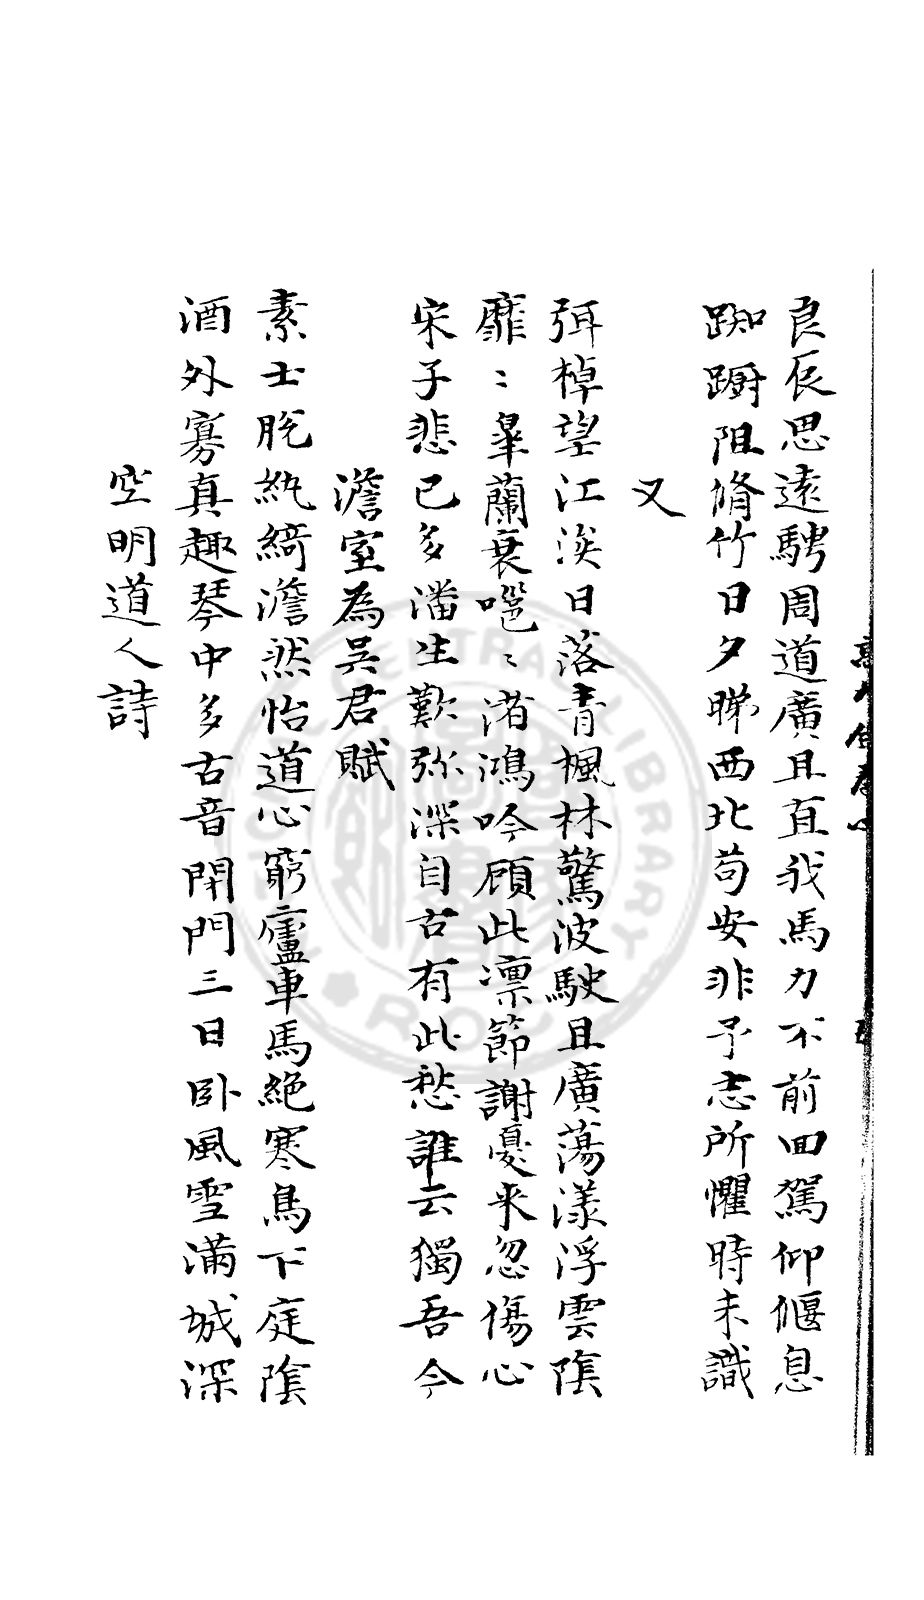 良辰思遠騁周道廣且直我馬力不前回駕仰偃息
踟躕阻脩竹日夕睇西北苟安非予志所懼時未識
又
弭棹望江涘日落青楓林驚波駛且廣蕩漾浮雲陰
靡〻皐蘭衰嗈〻渚鴻吟顧此凛節謝憂来忽傷心
宋子悲已多潘生歎弥深自古有此愁誰云獨吾今
澹室為吳君賦
素士脫紈綺澹然怡道心窮廬車馬絕寒鳥下庭陰
酒外寡真趣琴中多古音閉門三日卧風雪滿城深
空明道人詩
CENTRAL LIBRARY
R.O.C.